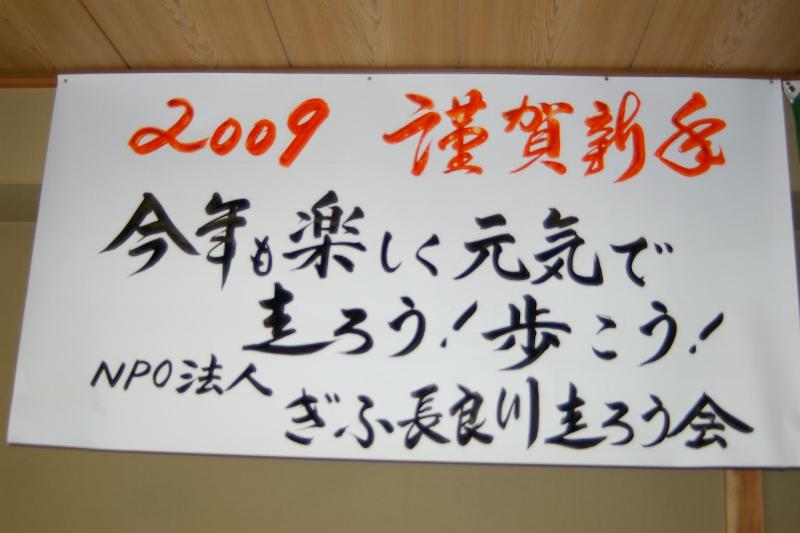 2009 謹賀新年
今年も楽しく元気で
走ろう!歩こう!
NPO法人
ぎふ長良川走ろう会